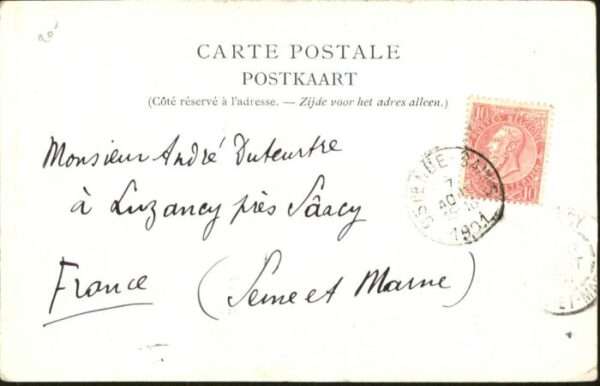 20
CARTE POSTALE
POSTKAART
(Côté réservé à l'adresse. — Zijde voor het adres alleen.)
10 10
Monsieur André Duteurtre
à Luzancy près Sâacy
France (Seine et Marne)
7
AOUT
1901